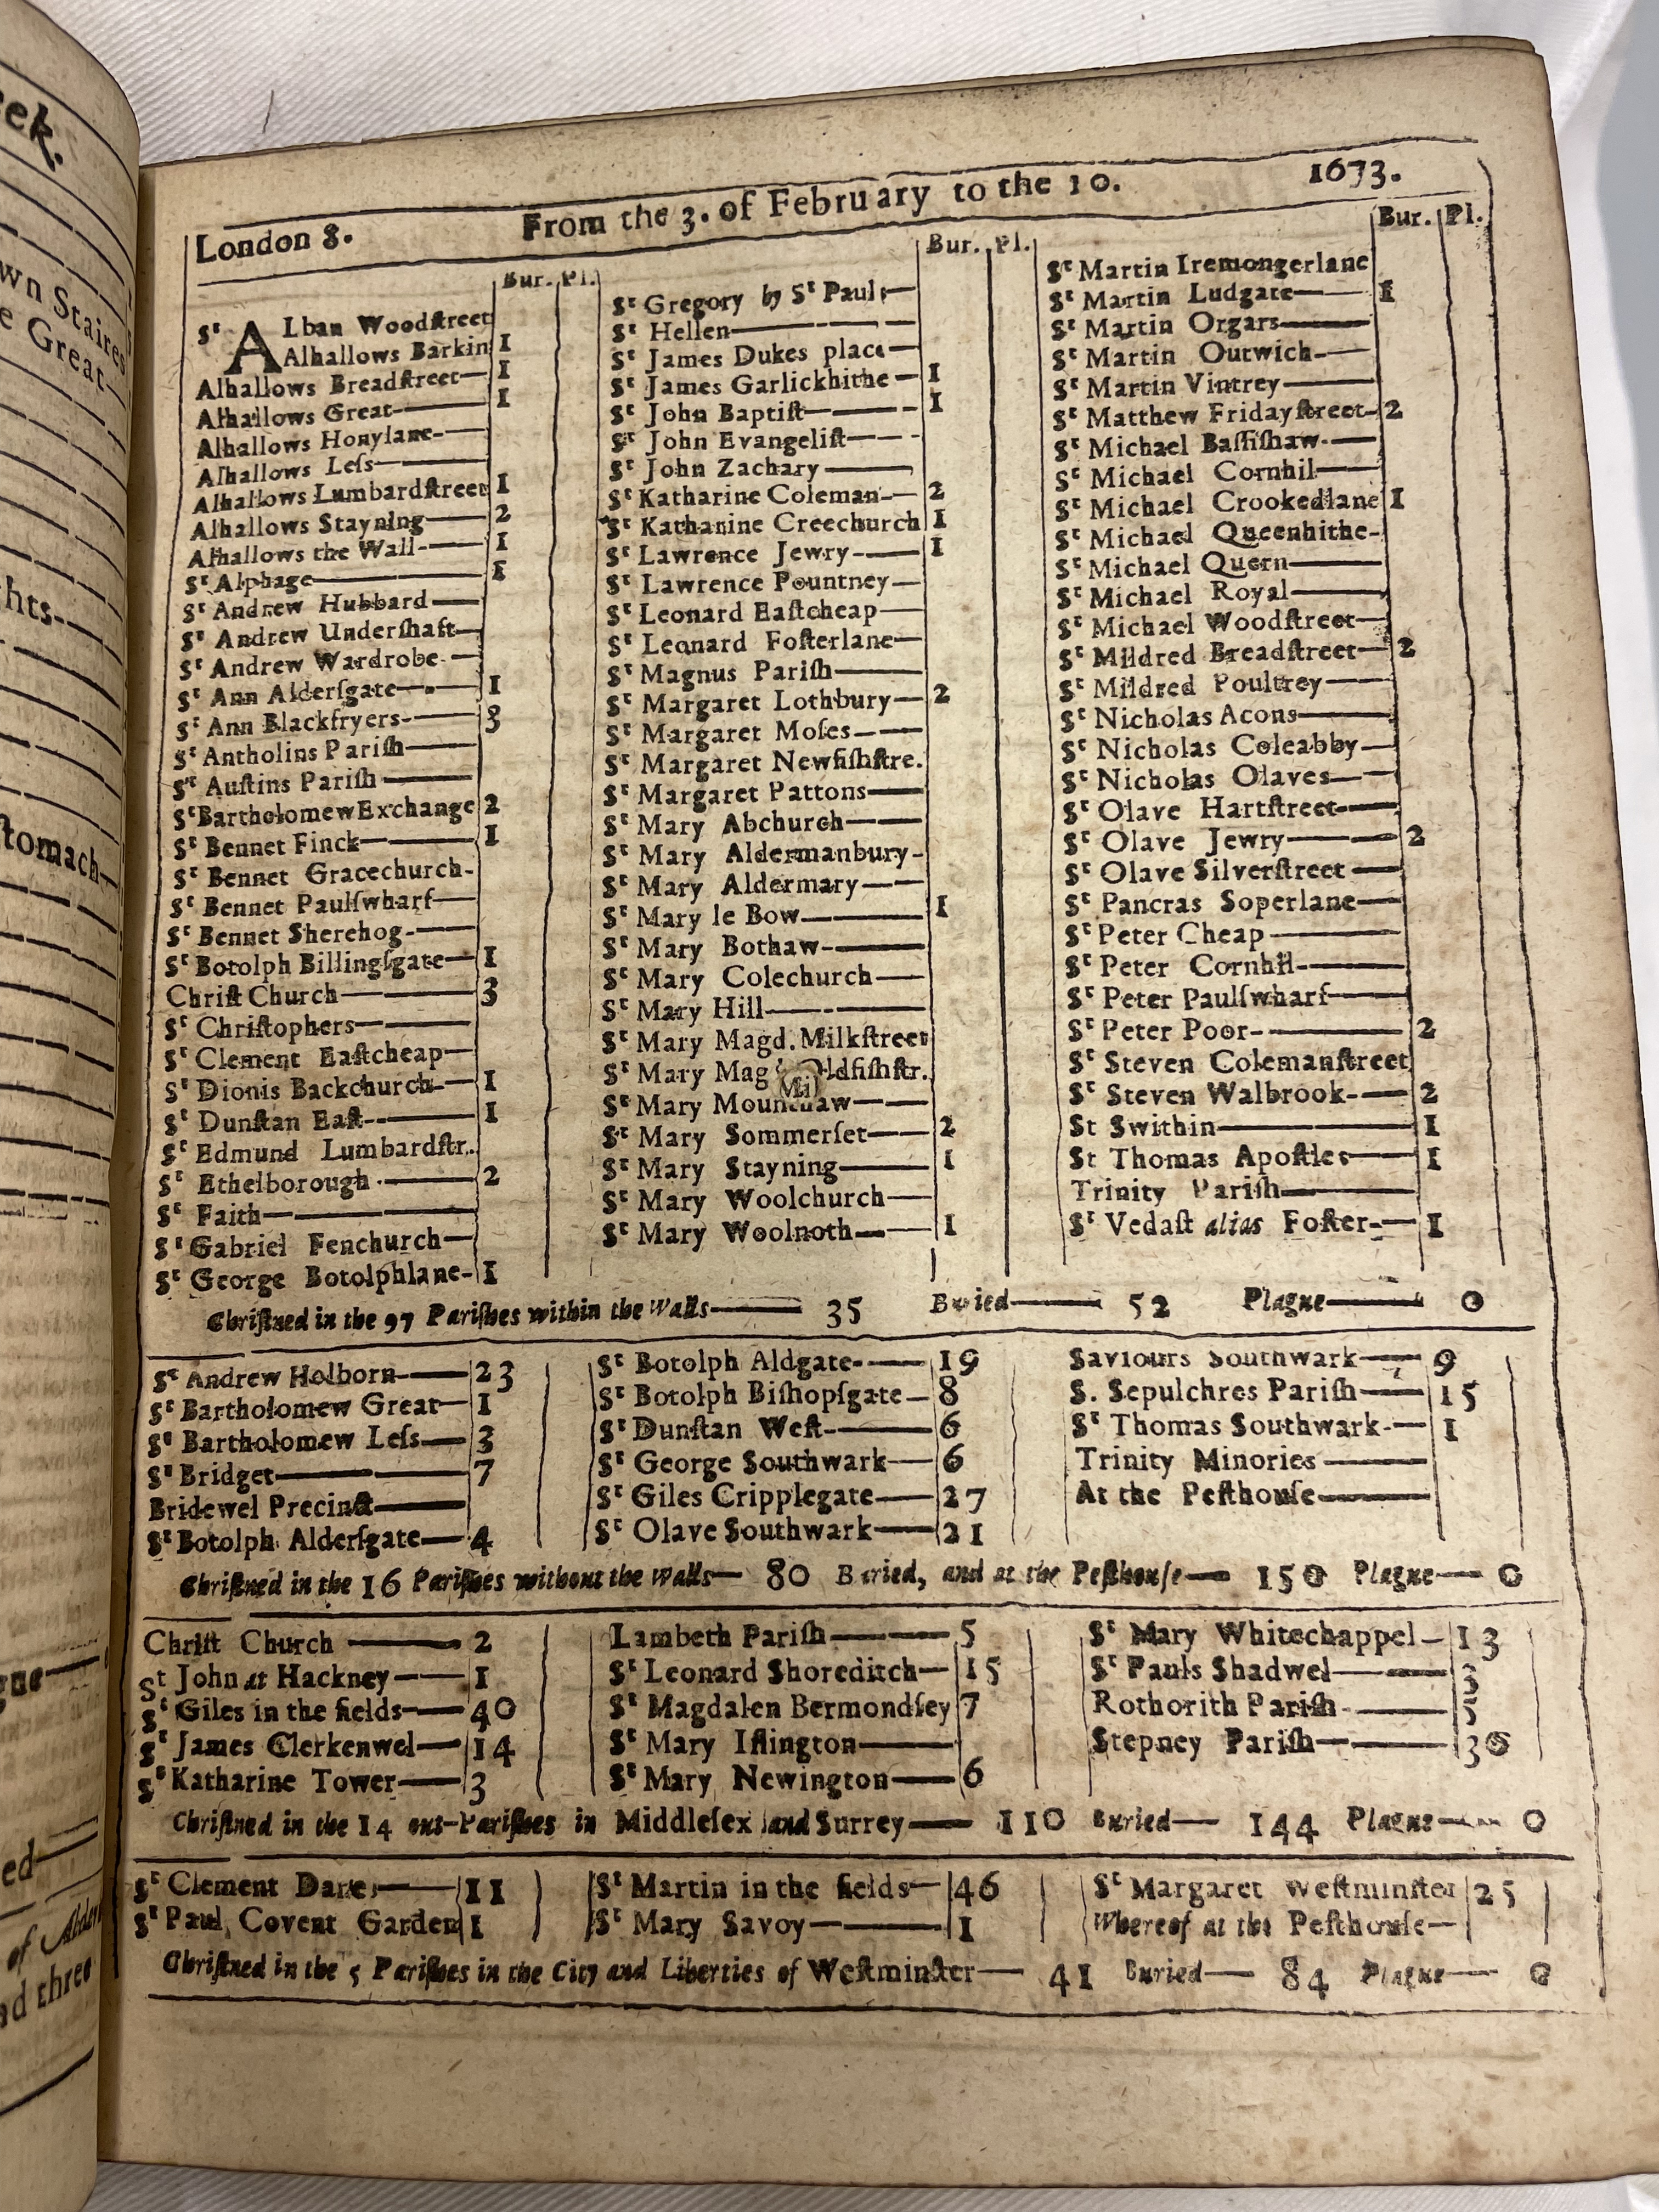 London 8. From the 3. of February to the 10. 1673.
Bur. Pl.
Sᵗ ALban Woodstreet
Alhallows Barkin 1
Alhallows Breadstreet 1
Alhallows Great 1
Alhallows Honylane
Alhallows Leſs
Alhallows Lumbardſtreet 1
Alhallows Stayning 2
Alhallows the Wall 1
Sᵗ Alphage 1
Sᵗ Andrew Hubbard
Sᵗ Andrew Underſhaft
Sᵗ Andrew Wardrobe
Sᵗ Ann Alderſgate 1
Sᵗ Ann Blackfryers 3
Sᵗ Antholins Pariſh
Sᵗ Auſtins Pariſh
Sᵗ Bartholomew Exchange 2
Sᵗ Bennet Finck 1
Sᵗ Bennet Gracechurch
Sᵗ Bennet Paulſwharf
Sᵗ Bennet Sherehog
Sᵗ Botolph Billingſgate 1
Chriſt Church 3
Sᵗ Chriſtophers
Sᵗ Clement Eaſtcheap
Sᵗ Dionis Backchurch 1
Sᵗ Dunſtan Eaſt 1
Sᵗ Edmund Lumbardſtr.
Sᵗ Ethelborough 2
Sᵗ Faith
Sᵗ Gabriel Fenchurch
Sᵗ George Botolphlane 1
Bur. Pl.
Sᵗ Gregory by Sᵗ Pauls
Sᵗ Hellen
Sᵗ James Dukes place
Sᵗ James Garlickhithe 1
Sᵗ John Baptiſt 1
Sᵗ John Evangeliſt
Sᵗ John Zachary
Sᵗ Katharine Coleman 2
Sᵗ Katharine Creechurch 1
Sᵗ Lawrence Jewry 1
Sᵗ Lawrence Pountney
Sᵗ Leonard Eaſtcheap
Sᵗ Leonard Foſterlane
Sᵗ Magnus Pariſh
Sᵗ Margaret Lothbury 2
Sᵗ Margaret Moſes
Sᵗ Margaret Newfiſhſtre.
Sᵗ Margaret Pattons
Sᵗ Mary Abchurch
Sᵗ Mary Aldermanbury
Sᵗ Mary Aldermary
Sᵗ Mary le Bow 1
Sᵗ Mary Bothaw
Sᵗ Mary Colechurch
Sᵗ Mary Hill
Sᵗ Mary Magd. Milkſtreet
Sᵗ Mary Mag ldfiſhſtr.
Sᵗ Mary
Sᵗ Mary Sommerſet 2
Sᵗ Mary Stayning 1
Sᵗ Mary Woolchurch
Sᵗ Mary Woolnoth 1
Bur. Pl.
Sᵗ Martin Iremongerlane
Sᵗ Martin Ludgate 1
Sᵗ Martin Orgars
Sᵗ Martin Outwich
Sᵗ Martin Vintrey
Sᵗ Matthew Fridayſtreet 2
Sᵗ Michael Baſſiſhaw
Sᵗ Michael Cornhil
Sᵗ Michael Crookedlane 1
Sᵗ Michael Queenhithe
Sᵗ Michael Quern
Sᵗ Michael Royal
Sᵗ Michael Woodſtreet
Sᵗ Mildred Breadſtreet 2
Sᵗ Mildred Poultrey
Sᵗ Nicholas Acons
Sᵗ Nicholas Coleabby
Sᵗ Nicholas Olaves
Sᵗ Olave Hartſtreet
Sᵗ Olave Jewry 2
Sᵗ Olave Silverſtreet
Sᵗ Pancras Soperlane
Sᵗ Peter Cheap
Sᵗ Peter Cornhil
Sᵗ Peter Paulſwharf
Sᵗ Peter Poor 2
Sᵗ Steven Colemanſtreet
Sᵗ Steven Walbrook 2
St Swithin 1
St Thomas Apoſtles 1
Trinity Pariſh
Sᵗ Vedaſt alias Foſter 1
Chriſtned in the 97 Pariſhes within the Walls 35 Buried 52 Plague 0
Sᵗ Andrew Holborn 23
Sᵗ Bartholomew Great 1
Sᵗ Bartholomew Leſs 3
Sᵗ Bridget 7
Bridewel Precinct
Sᵗ Botolph Alderſgate 4
Sᵗ Botolph Aldgate 19
Sᵗ Botolph Biſhopſgate 8
Sᵗ Dunſtan Weſt 6
Sᵗ George Southwark 6
Sᵗ Giles Cripplegate 27
Sᵗ Olave Southwark 21
Saviours Southwark 9
S. Sepulchres Pariſh 15
Sᵗ Thomas Southwark 1
Trinity Minories
At the Peſthouſe
Chriſtned in the 16 Pariſhes without the Walls 80 Buried, and at the Peſthouſe 150 Plague 0
Chriſt Church 2
St John at Hackney 1
Sᵗ Giles in the fields 40
Sᵗ James Clerkenwel 14
Sᵗ Katharine Tower 3
Lambeth Pariſh 5
Sᵗ Leonard Shoreditch 15
Sᵗ Magdalen Bermondſey 7
Sᵗ Mary Iſlington
Sᵗ Mary Newington 6
Sᵗ Mary Whitechappel 13
Sᵗ Pauls Shadwel 3
Rothorith Pariſh 5
Stepney Pariſh 30
Chriſtned in the 14 out-Pariſhes in Middleſex and Surrey 110 Buried 144 Plague 0
Sᵗ Clement Danes 11
Sᵗ Paul Covent Garden 1
Sᵗ Martin in the fields 46
Sᵗ Mary Savoy 1
Sᵗ Margaret Weſtminſter 25
Whereof at the Peſthouſe
Chriſtned in the 5 Pariſhes in the City and Liberties of Weſtminſter 41 Buried 84 Plague 0